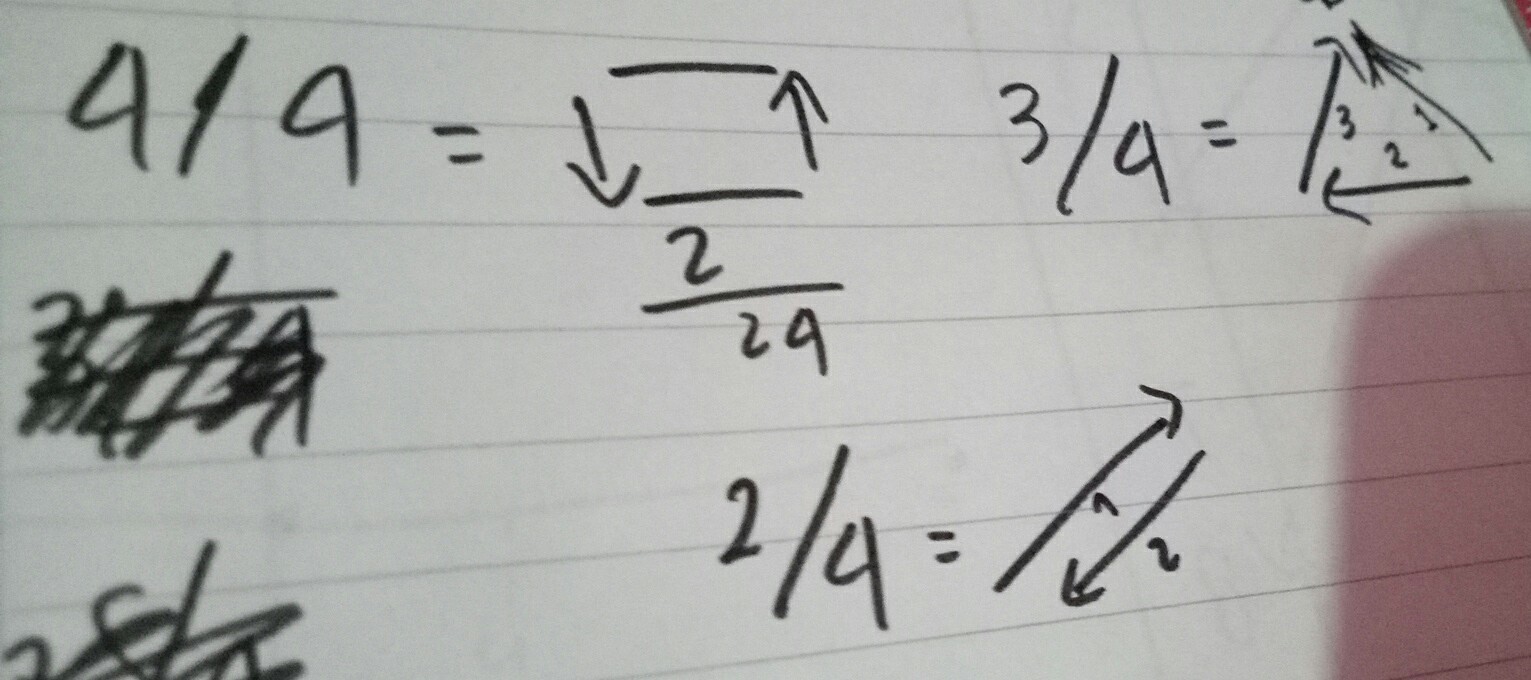 4/4 = 3/4 = 3 2 1
2
24
2/4 = 1 2